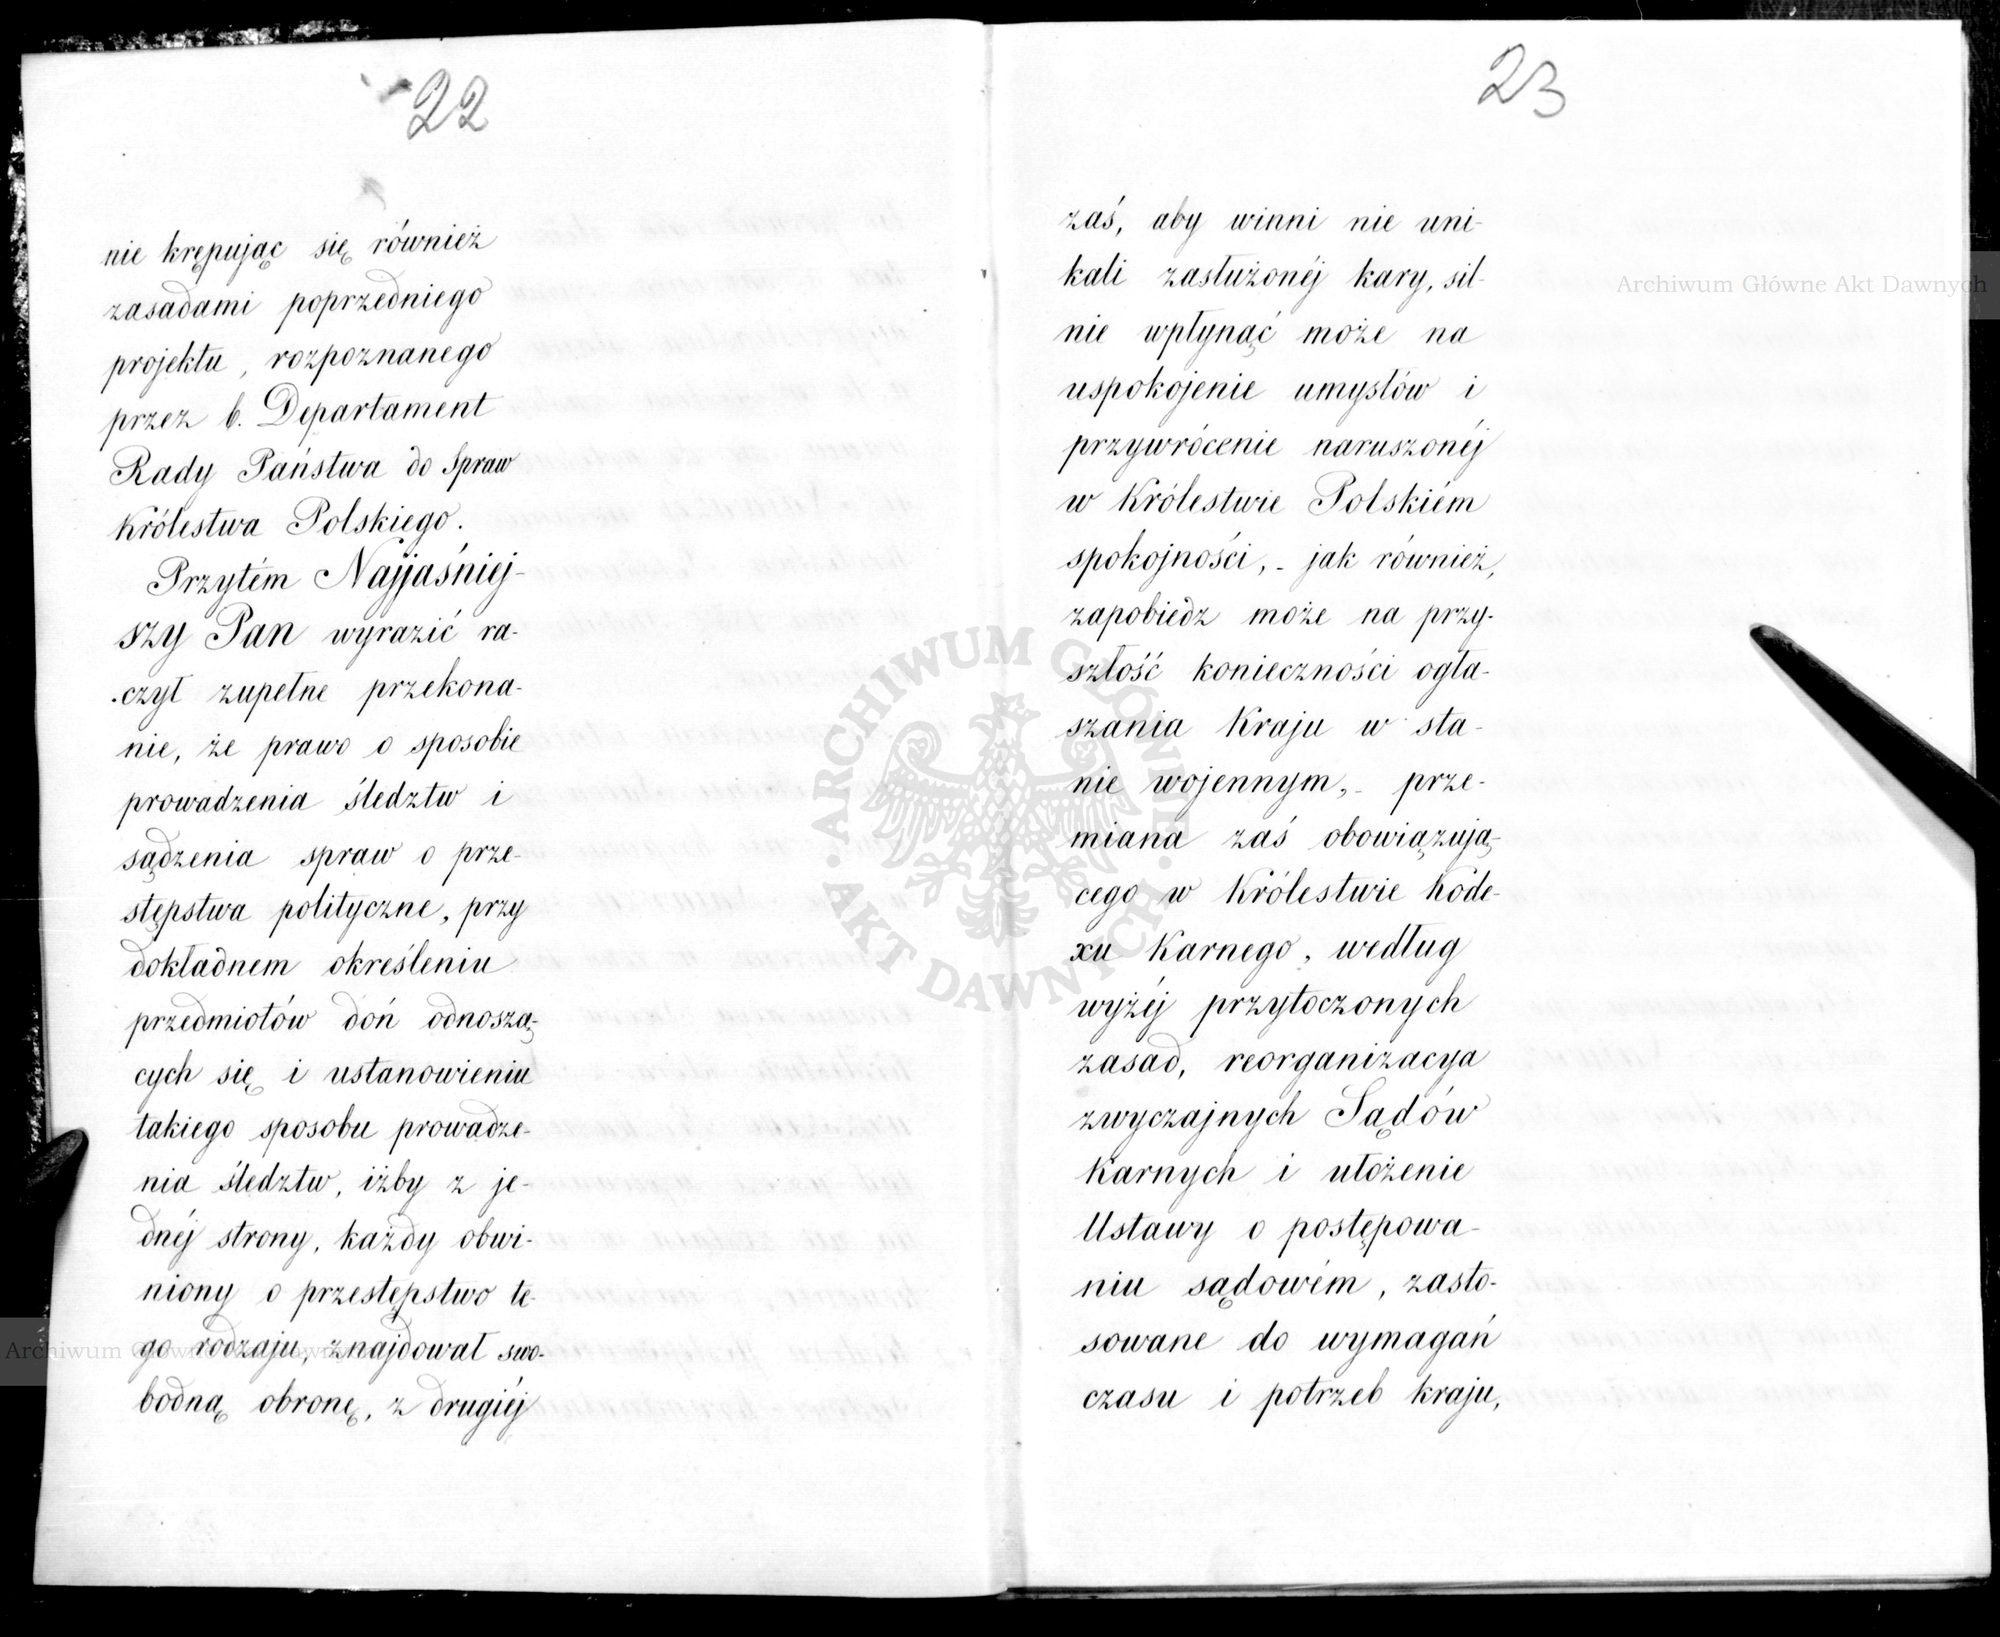 22
nie krępując się również
zasadami poprzedniego
projektu, rozpoznanego
przez b. Departament
Rady Państwa do Spraw
Królestwa Polskiego.
Przytém Najjaśniej-
szy Pan wyrazić ra-
czył zupełne przekona-
nie, że prawo o sposobie
prowadzenia śledztw i
sądzenia spraw o prze-
stępstwa polityczne, przy
dokładnem określeniu
przedmiotów doń odnoszą-
cych się i ustanowieniu
takiego sposobu prowadze-
nia śledztw, iżby z je-
dnéj strony, każdy obwi-
niony o przestępstwo te-
go rodzaju, znajdował swo-
bodną obronę, z drugiéj
23
zaś, aby winni nie uni-
kali zasłużonéj kary, sil-
nie wpłynąć może na
uspokojenie umysłów i
przywrócenie naruszonéj
w Królestwie Polskiém
spokojności, - jak również,
zapobiedz może na przy-
szłość konieczności ogła-
szania Kraju w sta-
nie wojennym, - prze-
miana zaś obowiązują-
cego w Królestwie Kode-
xu Karnego, według
wyżéj przytoczonych
zasad, reorganizacya
zwyczajnych Sądów
Karnych i ułożenie
Ustawy o postępowa-
niu sądowém, zasto-
sowane do wymagań
czasu i potrzeb kraju,
Archiwum Główne Akt Dawnych
ARCHIWUM GŁÓWNE
AKT DAWNYCH
Archiwum Główne Akt Dawnych